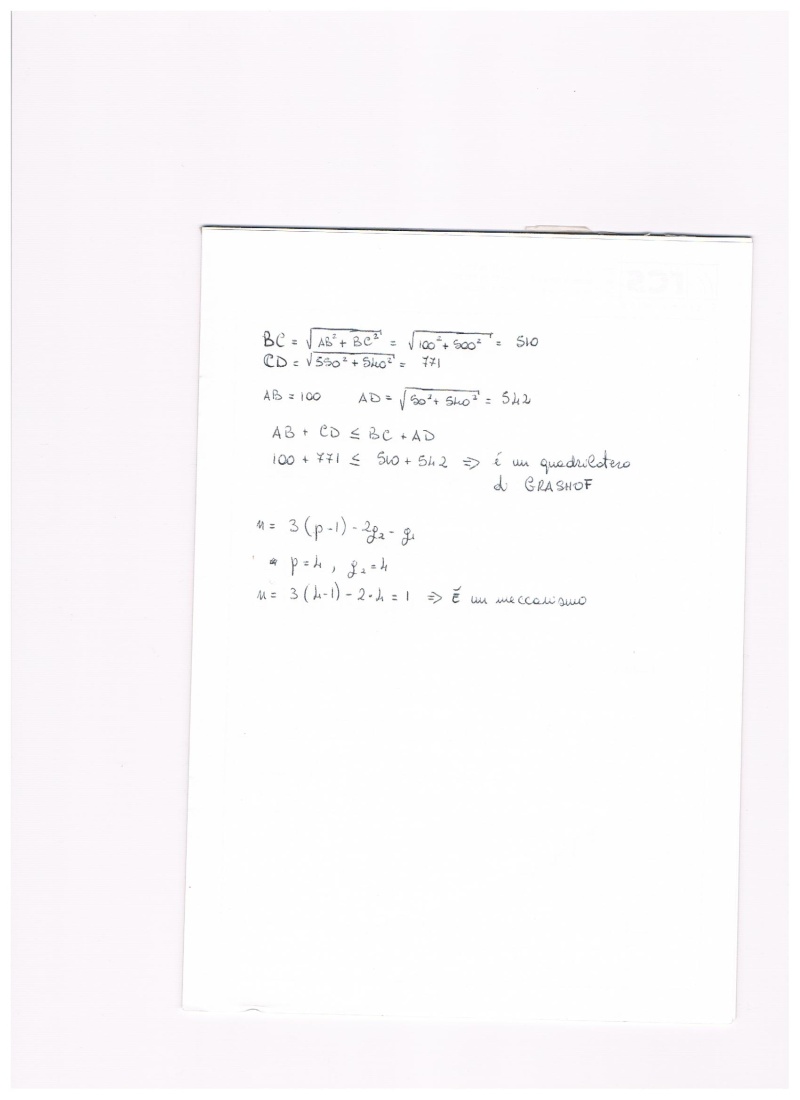 BC = √(AB² + BC²) = √(100² + 500²) = 510
CD = √(550² + 540²) = 771
AB = 100 AD = √(50² + 540²) = 542
AB + CD ≤ BC + AD
100 + 771 ≤ 510 + 542 => é un quadrilatero
di GRASHOF
n = 3(p-1) - 2g₂ - g₁
p = 4 , g₂ = 4
n = 3(4-1) - 2·4 = 1 => É un meccanismo